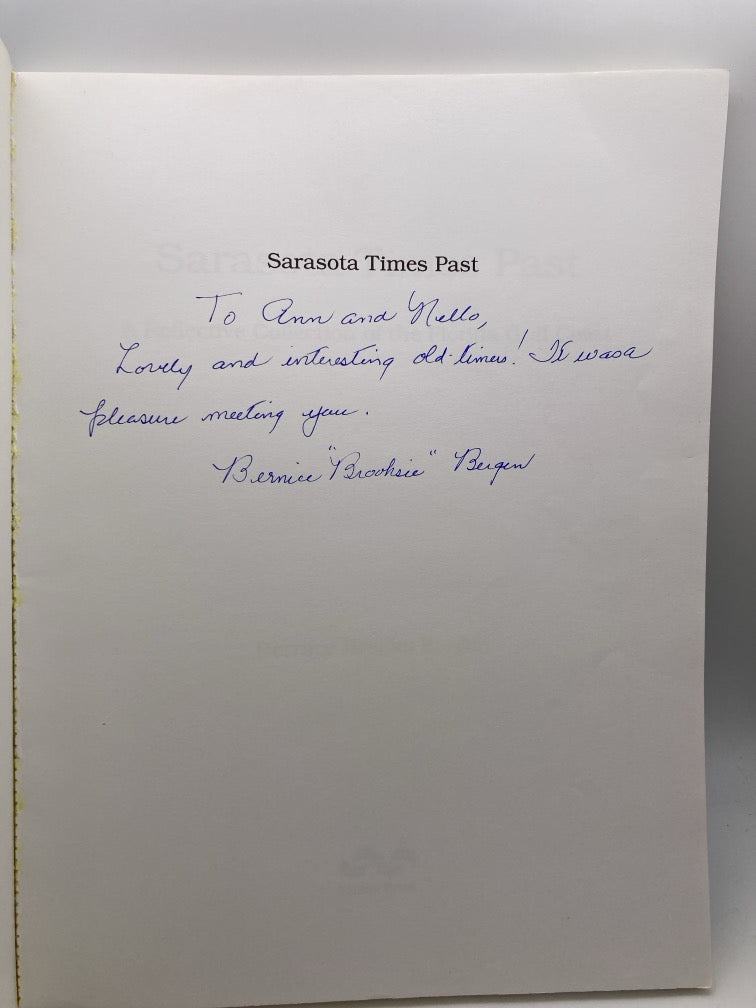 Sarasota Times Past
To Ann and Nello,
Lovely and interesting old-timers! It was a
pleasure meeting you.
Bernice "Brooksie" Bergen